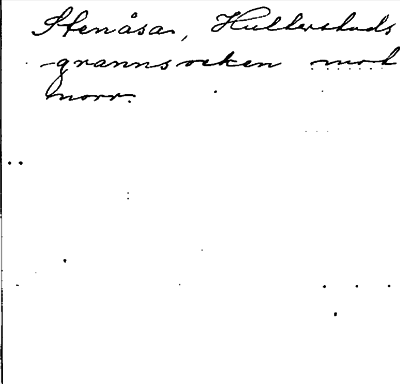 Stenåsa, Hulterstads
grannsocken mot
norr.